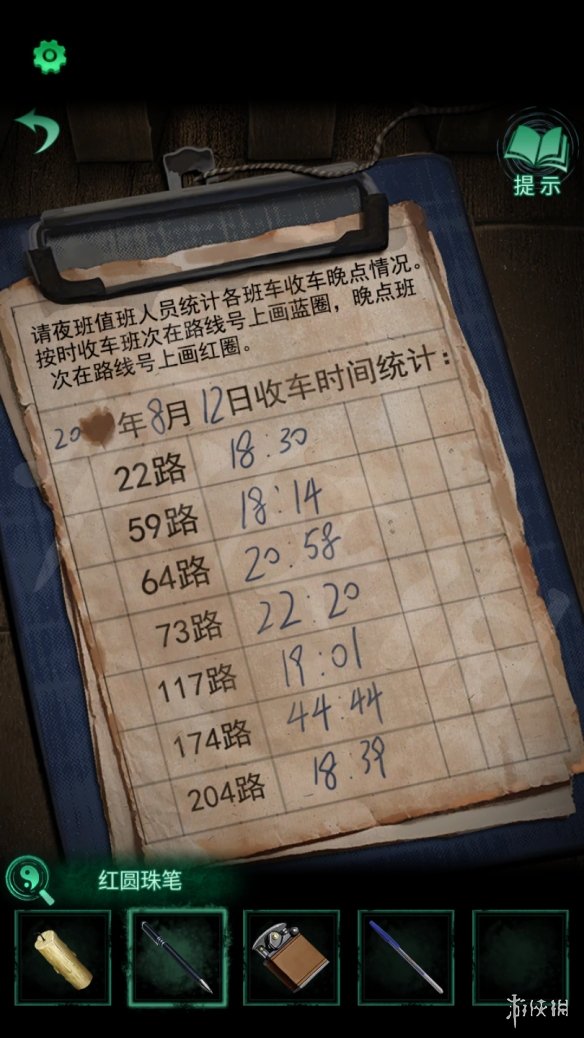 提示
请夜班值班人员统计各班车收车晚点情况。
按时收车班次在路线号上画蓝圈，晚点班
次在路线号上画红圈。
20 年8月12日收车时间统计：
22路 18:30
59路 18:14
64路 20:58
73路 22:20
117路 19:01
174路 44:44
204路 18:39
红圆珠笔
游侠网